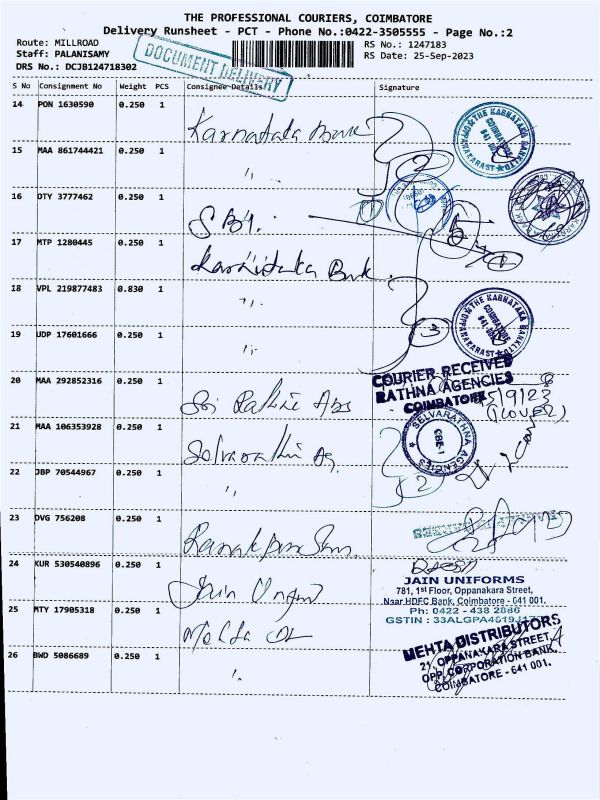 THE PROFESSIONAL COURIERS, COIMBATORE
Delivery Runsheet - PCT - Phone No.:0422-3505555 - Page No.:2
Route: MILLROAD
RS No.: 1247183
Staff: PALANISAMY
RS Date: 25-Sep-2023
DRS No.: DCJB124718302
DOCUMENT DELIVERY
S No Consignment No Weight PCS Consignee Details Signature
14 PON 1630590 0.250 1 Karnataka Bank
THE KARNATAKA BANK LTD
COIMBATORE
15 MAA 861744421 0.250 1 "
16 OTY 3777462 0.250 1 SBI.
17 MTP 1280445 0.250 1 Karnataka Bank
18 VPL 219877483 0.830 1 "
THE KARNATAKA BANK LTD
COIMBATORE
19 UDP 17601666 0.250 1 "
COURIER RECEIVED
RATHNA AGENCIES
COIMBATORE
20 MAA 292852316 0.250 1
(1 COVER)
21 MAA 106353928 0.250 1
SELVARATHNA AGENCIES
CBE-1
22 JBP 70544967 0.250 1 "
23 DVG 756208 0.250 1
24 KUR 530540896 0.250 1 Jain
JAIN UNIFORMS
781, 1st Floor, Oppanakara Street,
Near HDFC Bank, Coimbatore - 641 001.
Ph: 0422 - 438 2886
GSTIN : 33ALGPA4619J1
25 MTY 17905318 0.250 1
MEHTA DISTRIBUTORS
21, OPPANAKARA STREET,
OPP. CORPORATION BANK,
COIMBATORE - 641 001.
26 BWD 5086689 0.250 1 "